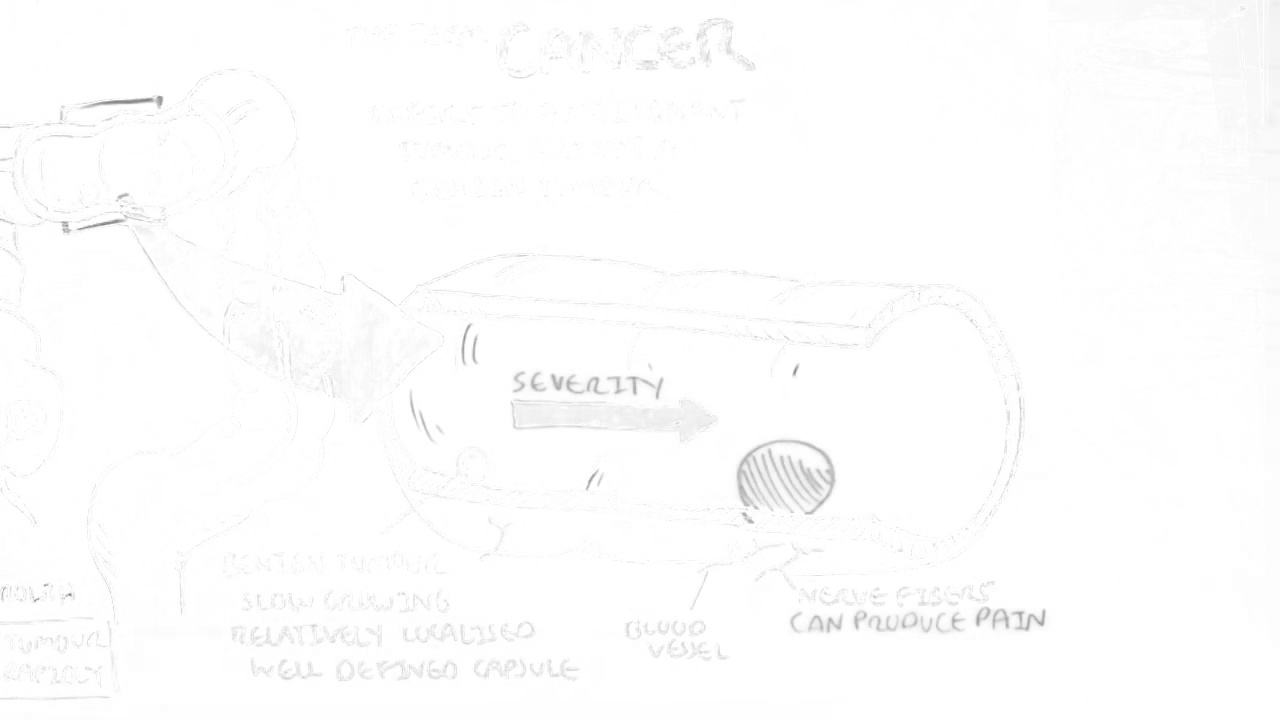 THE TERM CANCER
MALIGNANT
TUMOUR
BENIGN TUMOUR
SEVERITY
BENIGN TUMOUR
SLOW GROWING
RELATIVELY LOCALISED
WELL DEFINED CAPSULE
BLOOD
VESSEL
NERVE FIBERS
CAN PRODUCE PAIN
TUMOUR
RAPIDLY